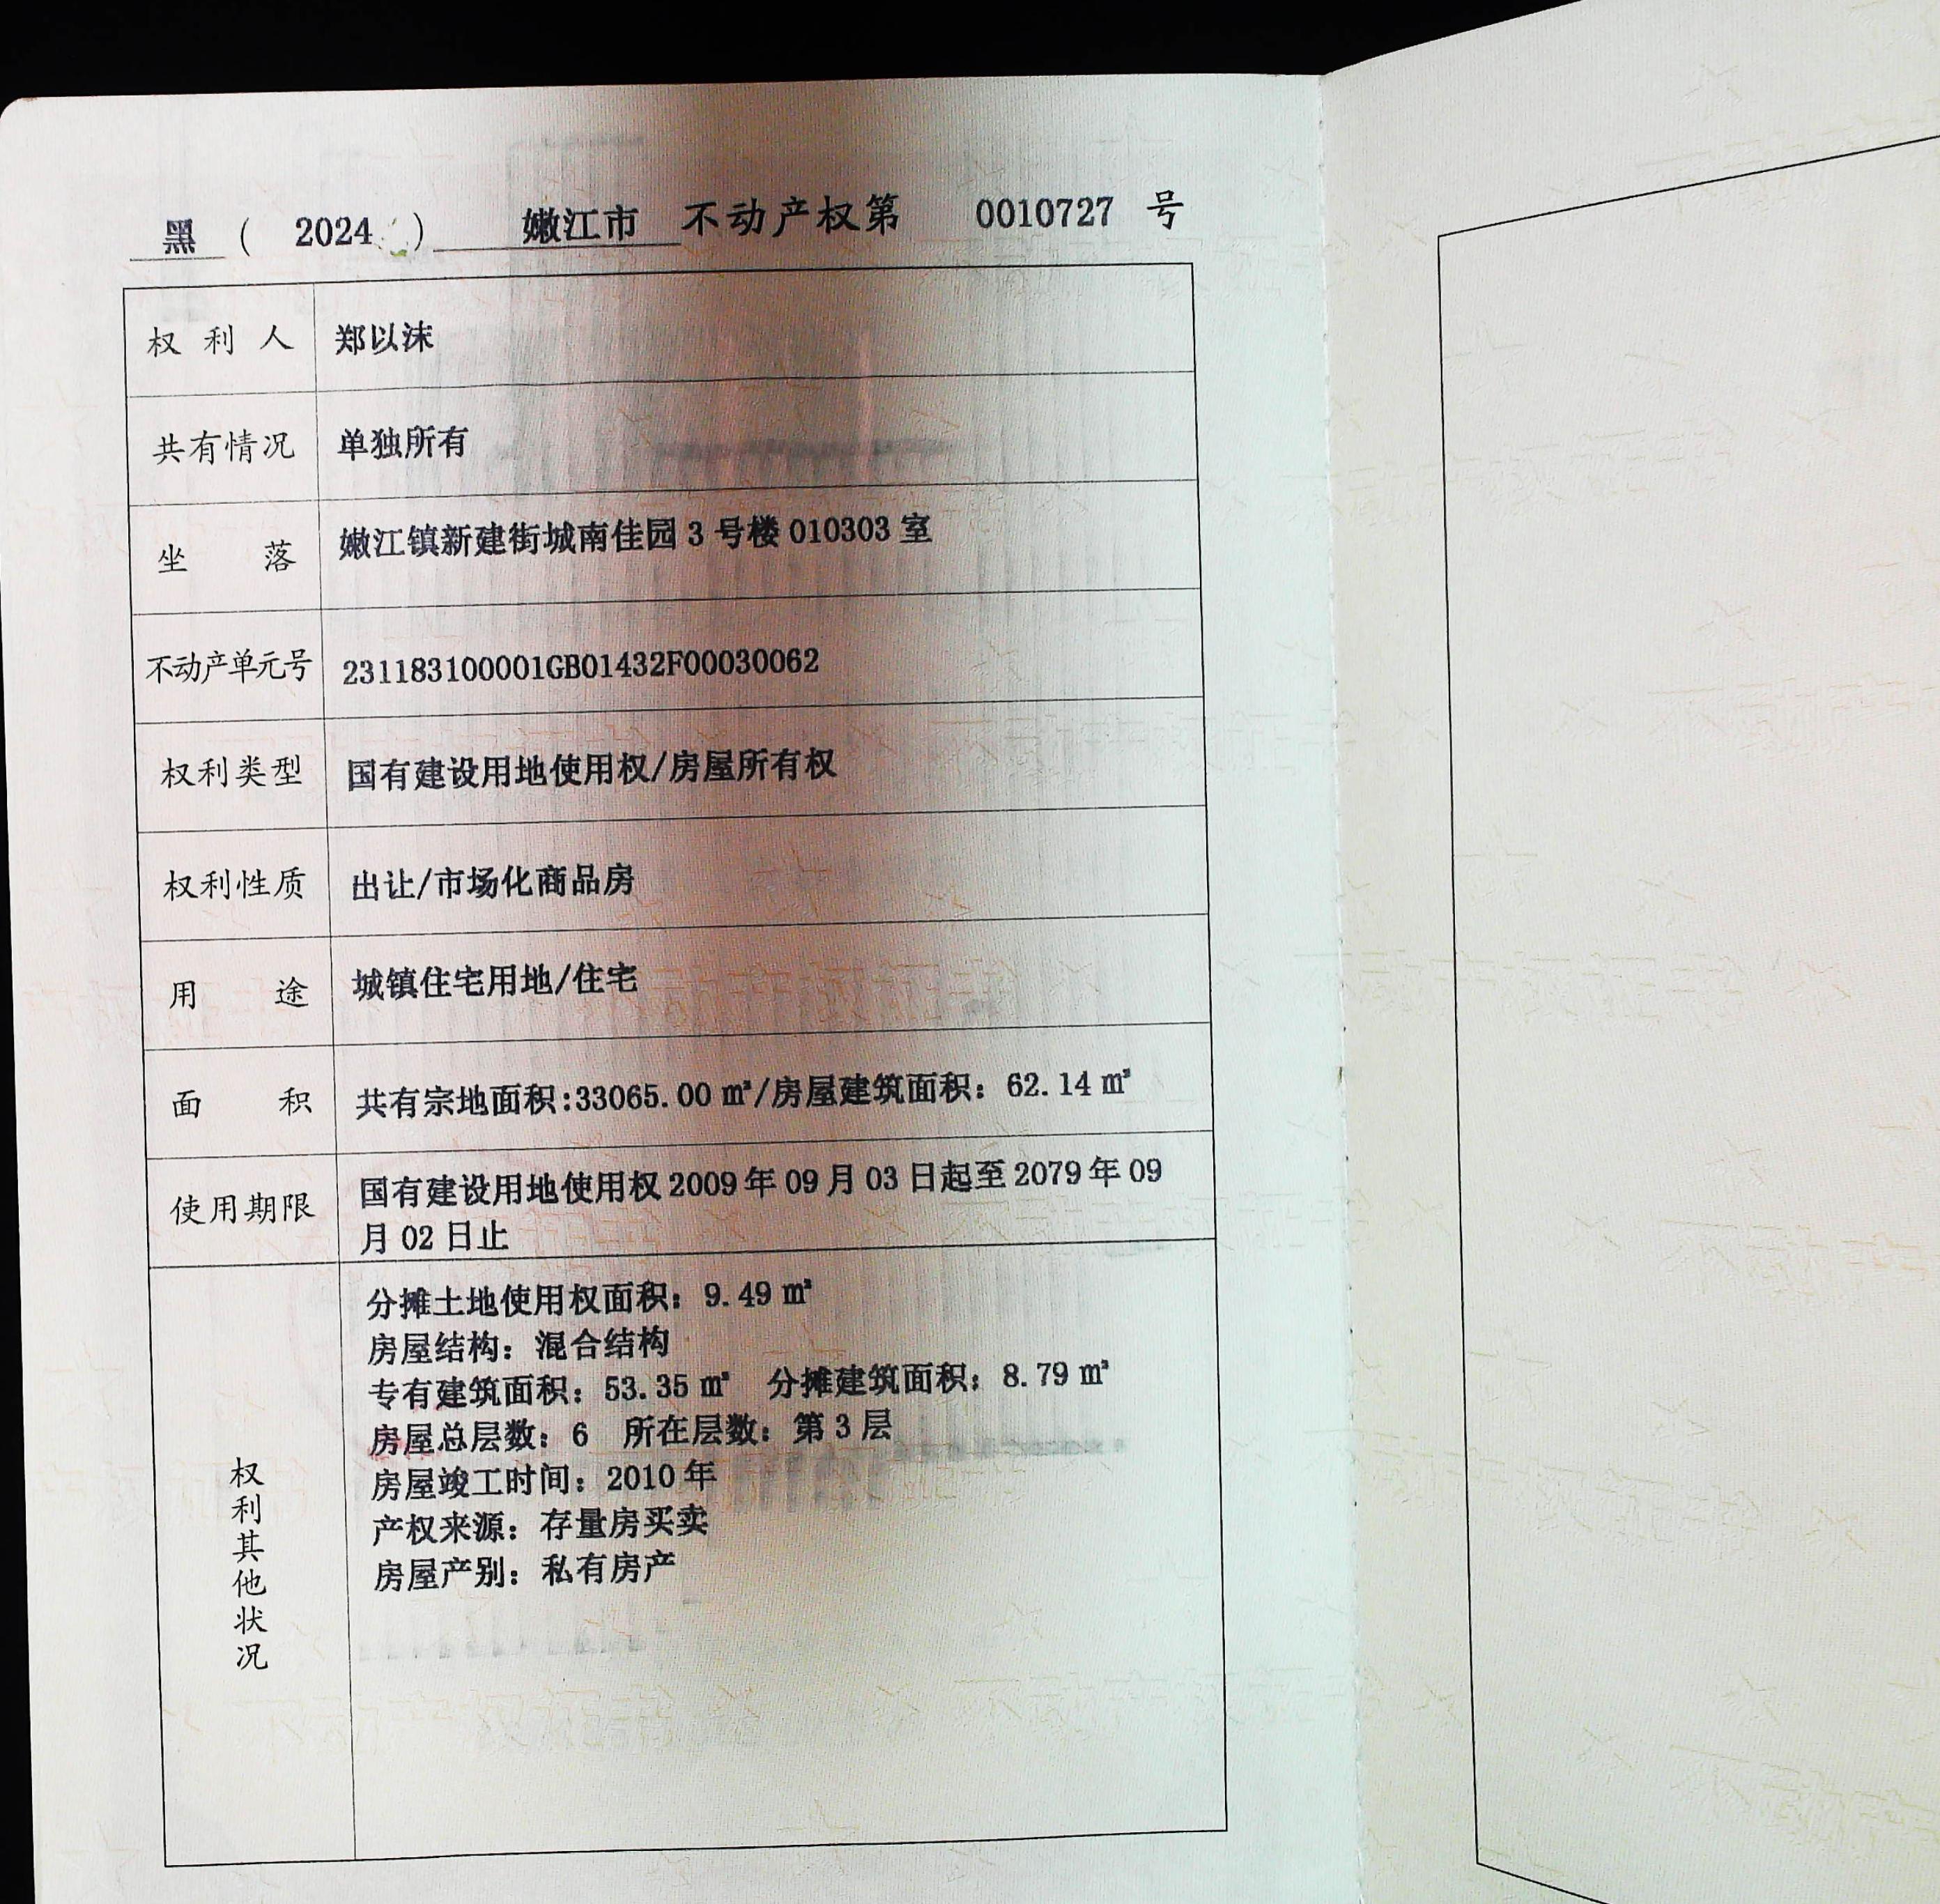 黑 ( 2024 ) 嫩江市 不动产权第 0010727 号
权利人 郑以沫
共有情况 单独所有
坐落 嫩江镇新建街城南佳园 3 号楼 010303 室
不动产单元号 231183100001GB01432F00030062
权利类型 国有建设用地使用权/房屋所有权
权利性质 出让/市场化商品房
用途 城镇住宅用地/住宅
面积 共有宗地面积:33065.00 ㎡/房屋建筑面积: 62.14 ㎡
使用期限 国有建设用地使用权 2009 年 09 月 03 日起至 2079 年 09
月 02 日止
权利其他状况
分摊土地使用权面积: 9.49 ㎡
房屋结构: 混合结构
专有建筑面积: 53.35 ㎡ 分摊建筑面积: 8.79 ㎡
房屋总层数: 6 所在层数: 第 3 层
房屋竣工时间: 2010 年
产权来源: 存量房买卖
房屋产别: 私有房产